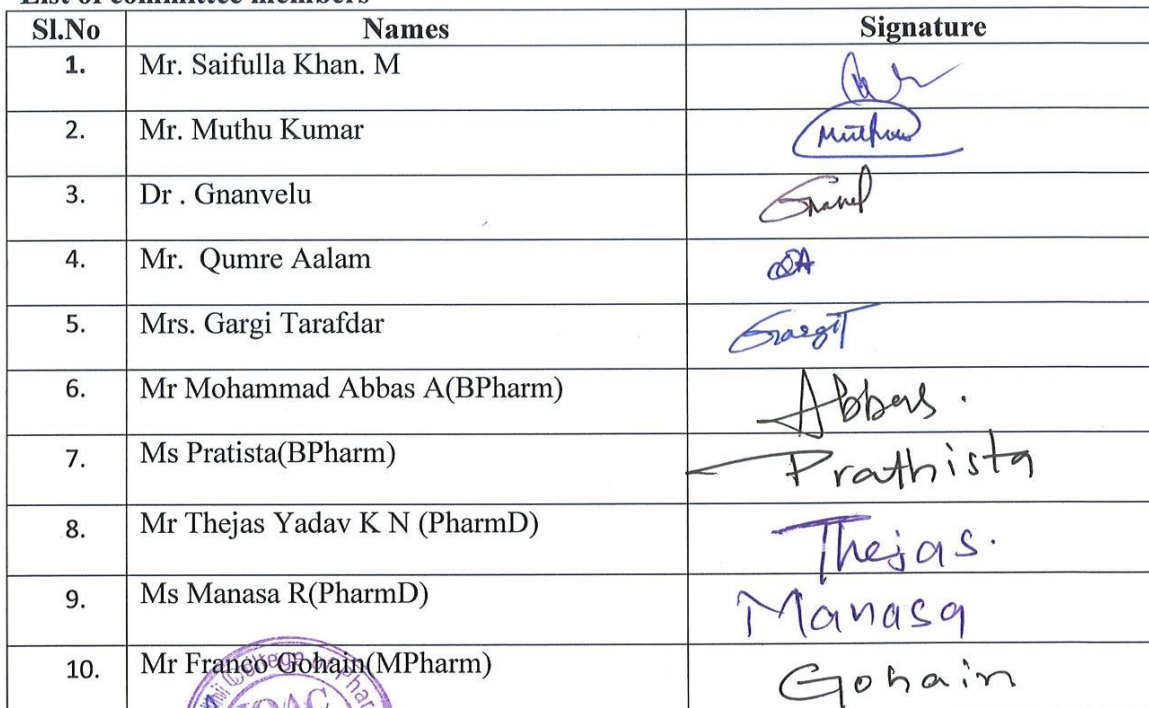 List of committee members
Sl.No Names Signature
1. Mr. Saifulla Khan. M
2. Mr. Muthu Kumar
3. Dr . Gnanvelu
4. Mr. Qumre Aalam
5. Mrs. Gargi Tarafdar
6. Mr Mohammad Abbas A(BPharm) Abbas.
7. Ms Pratista(BPharm) Prathista
8. Mr Thejas Yadav K N (PharmD) Thejas.
9. Ms Manasa R(PharmD) Manasa
10. Mr Franco Gohain(MPharm) Gohain
College of
IQAC